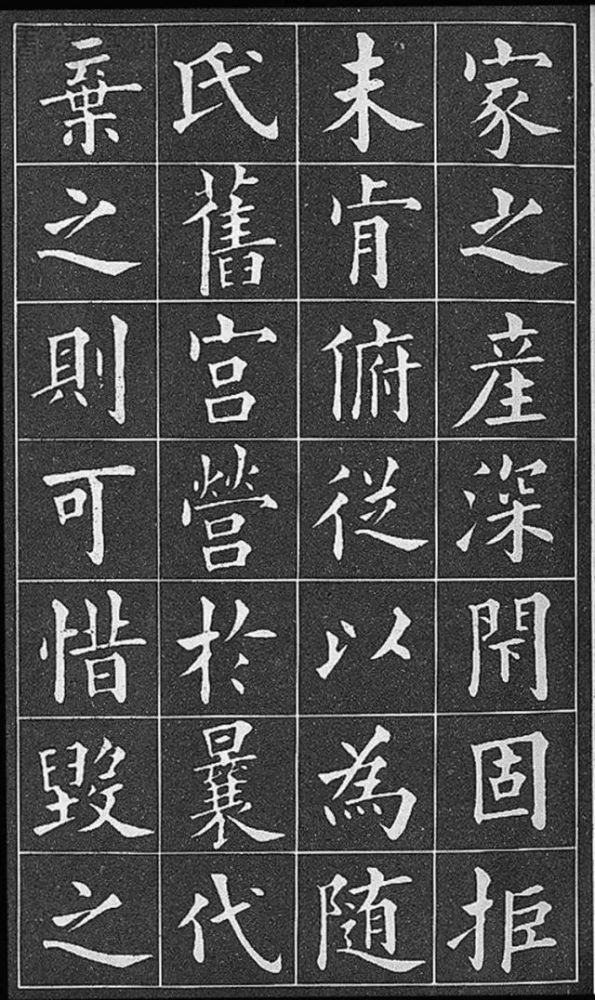 家之產深閇固拒
未肯俯從以為随
氏舊宮營於曩代
棄之則可惜毀之